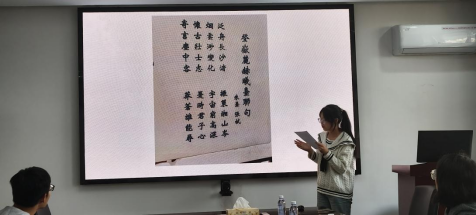 登嶽麓赫曦臺聯句
朱熹 張栻
泛舟長沙渚 振策湘山岑
煙雲渺變化 宇宙窮高深
懷古壯士志 憂時君子心
寄言塵中客 莽蒼誰能尋